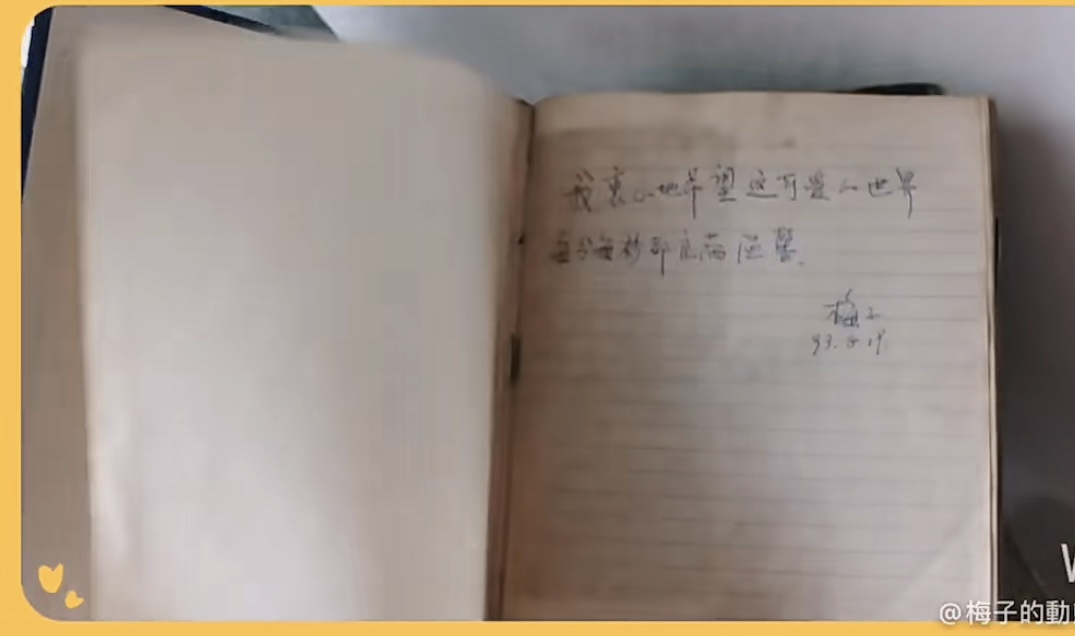 我衷心地希望这可爱的世界
每分每秒都充满温馨。
梅子
93.8.19
@梅子的動